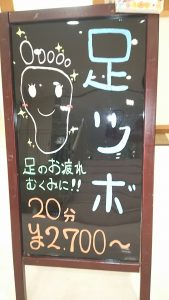 足ツボ
足のお疲れ
むくみに!!
20分
¥2,700〜